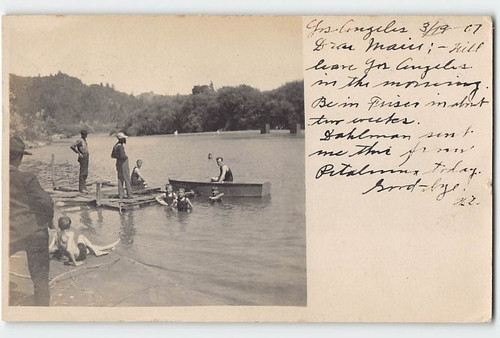 Los Angeles 3/19-07
Dear Maiss; - Will
leave Los Angeles
in the morning.
Be in Frisco in about
two weeks.
Dahlman sent
me this from
Petaluma today.
Good-bye.